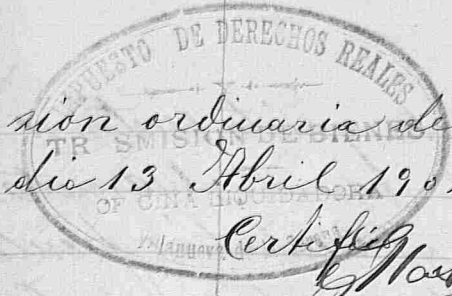 IMPUESTO DE DERECHOS REALES
sion ordinaria de
TRANSMISION DE BIENES
dia 13 Abril 190
OFICINA LIQUIDADORA
Certifico